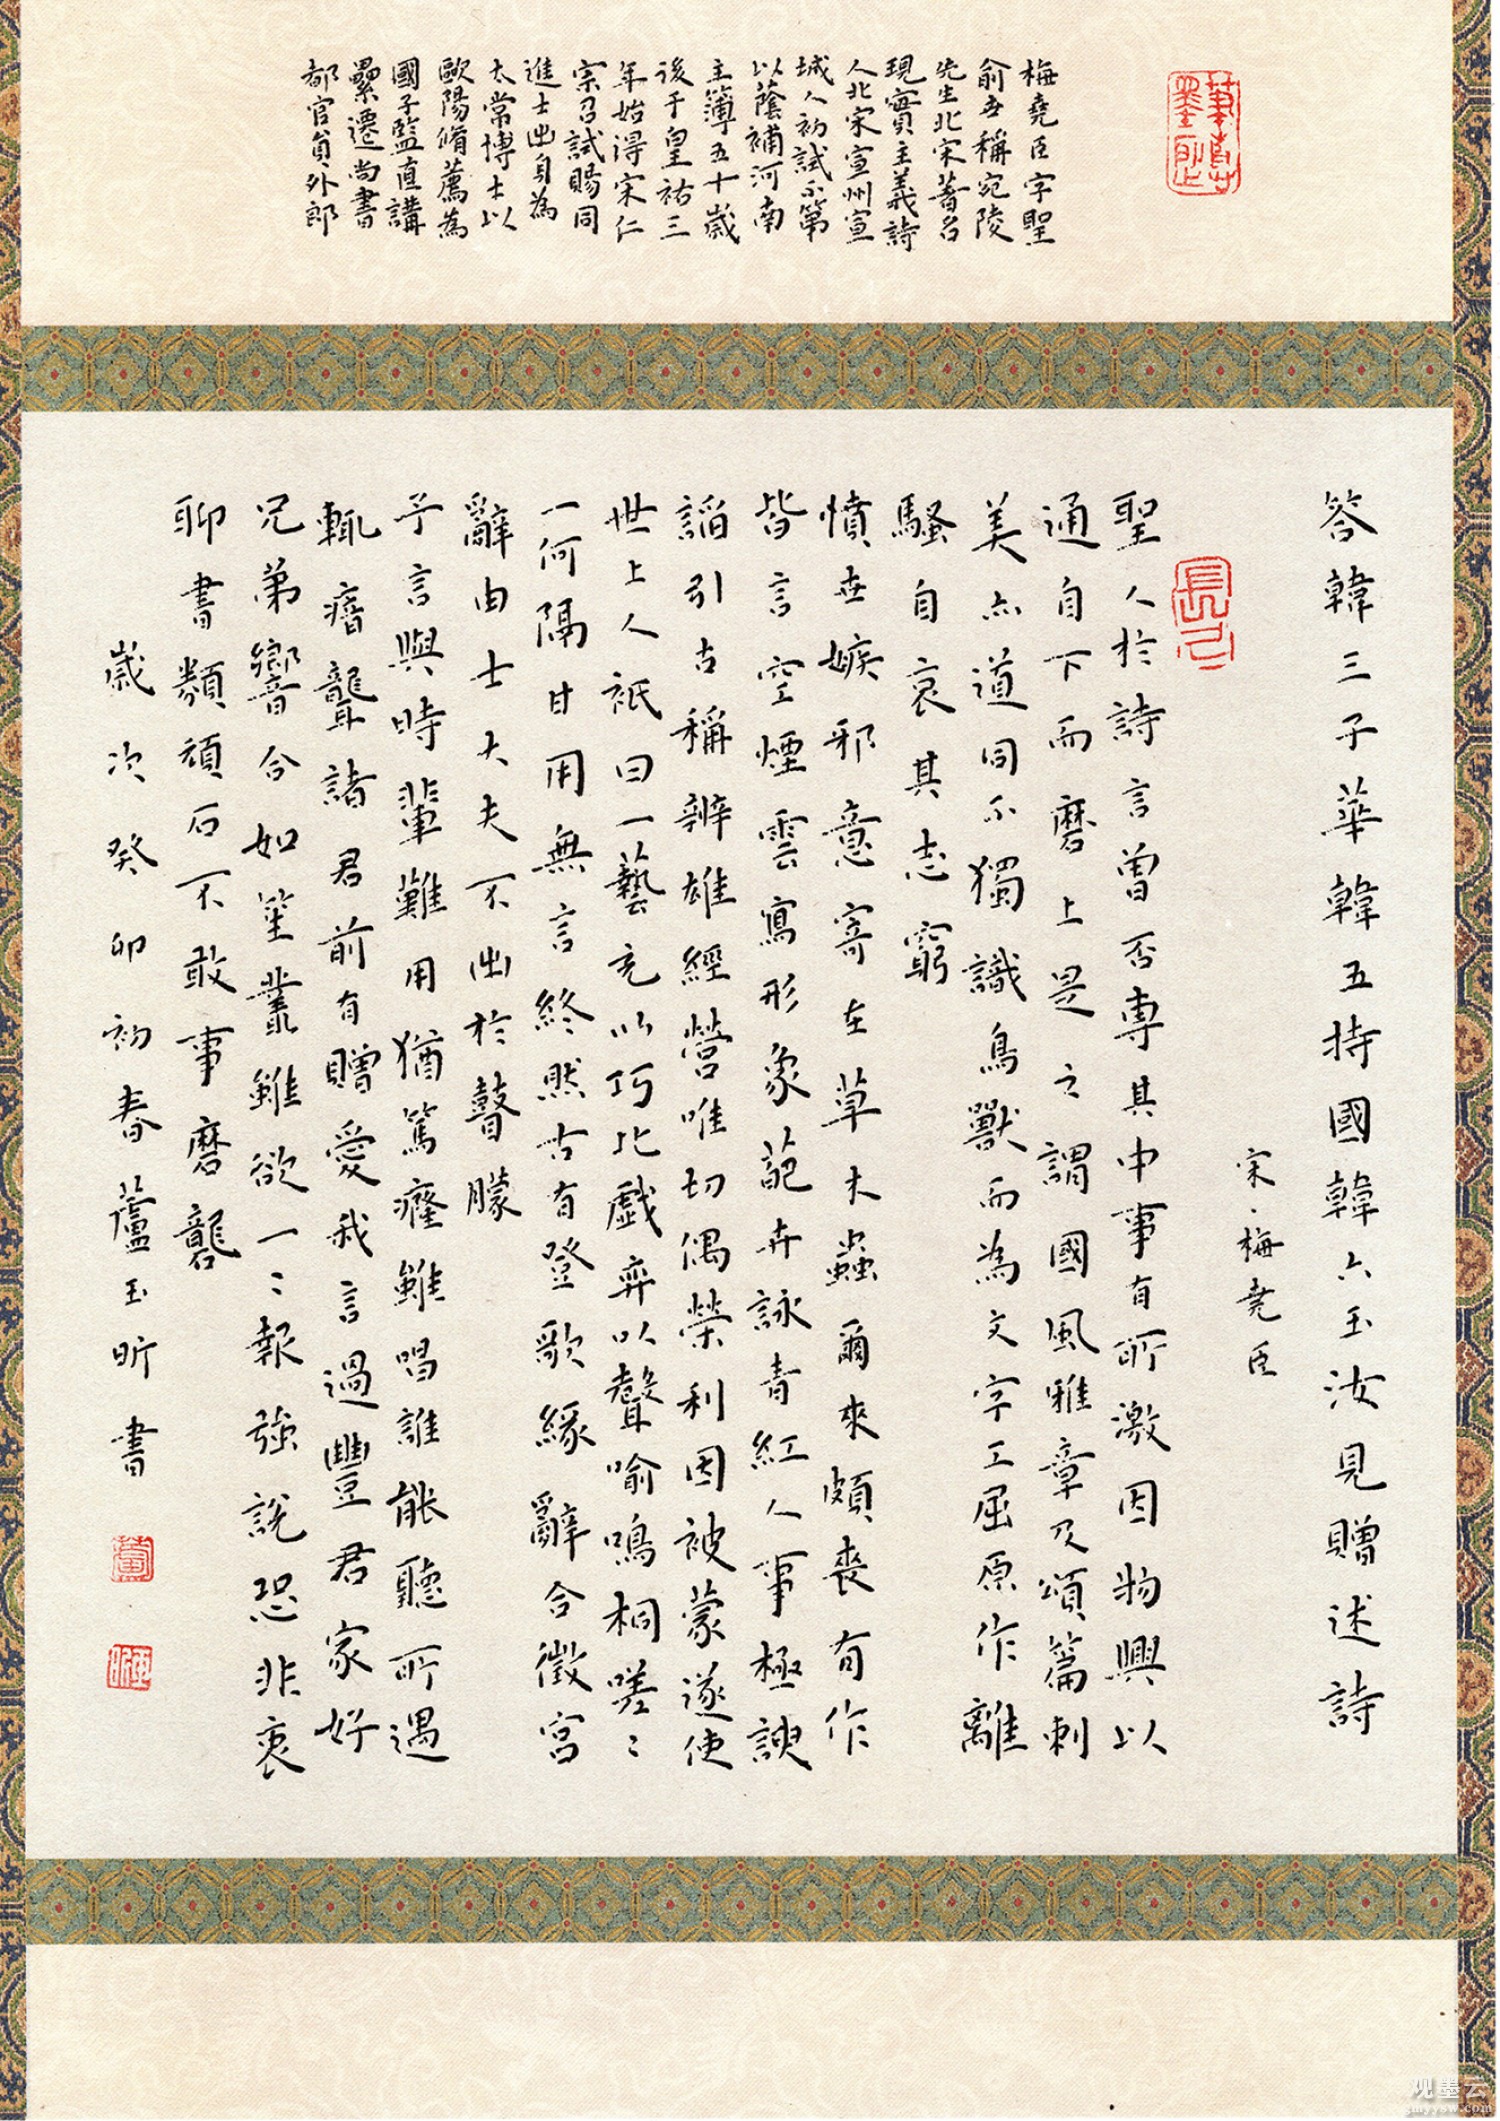 梅堯臣字聖
俞世稱宛陵
先生北宋著名
現實主義詩
人北宋宣州宣
城人初試不第
以蔭補河南
主簿五十歲
後于皇祐三
年始得宋仁
宗召試賜同
進士出身為
太常博士以
歐陽脩薦為
國子監直講
纍遷尚書
都官員外郎
答韓三子華韓五持國韓六玉汝見贈述詩
宋、梅堯臣
聖人於詩言曾否專其中事有所激因物興以
通自下而磨上是之謂國風雅章及頌篇刺
美亦道同不獨識鳥獸而為文字工屈原作離
騷自哀其志窮
憤世嫉邪意寄在草木蟲爾來頗喪有作
皆言空煙雲寫形象葩卉詠青紅人事極諛
諂引古稱辨雄經營唯切偶榮利因被蒙遂使
世上人祇曰一藝充以巧比戲弈以聲喻鳴桐嗟〻
一何隔甘用無言終然古有登歌緣辭合徵宮
辭由士大夫不出於瞽矇
予言與時輩難用猶篤癃雖唱誰能聽所遇
輒瘖聾諸君前有贈愛我言過豐君家好
兄弟響合如笙叢雖欲一〻報強說恐非衷
聊書類頑石不敢事磨礱
歲次癸卯初春蘆玉昕書
長
觀墨云
gmyysw.com